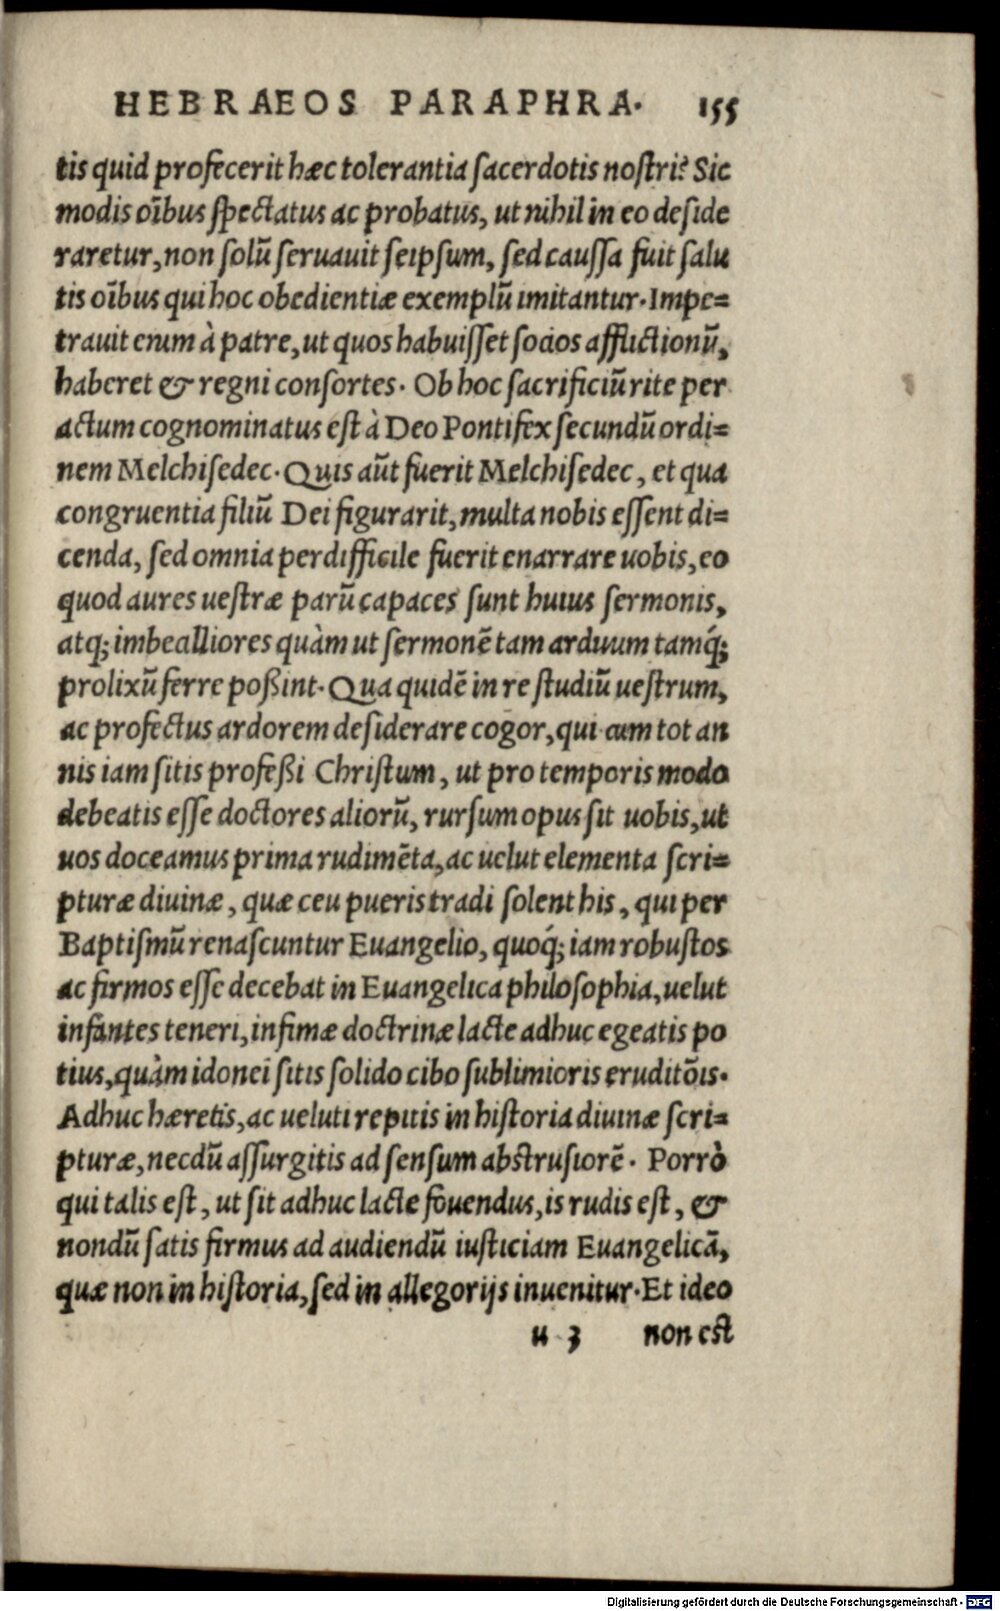 HEBRAEOS PARAPHRA. 155
tis quid profecerit hæc tolerantia sacerdotis nostri? Sic
modis oĩbus spectatus ac probatus, ut nihil in eo deside
raretur, non solũ seruauit seipsum, sed caussa fuit salu
tis oĩbus qui hoc obedientiæ exemplũ imitantur. Impe=
trauit enim à patre, ut quos habuisset socios afflictionũ,
haberet & regni consortes. Ob hoc sacrificiũ rite per
actum cognominatus est à Deo Pontifex secundũ ordi=
nem Melchisedec. Quis aũt fuerit Melchisedec, et qua
congruentia filiũ Dei figurarit, multa nobis essent di=
cenda, sed omnia perdifficile fuerit enarrare uobis, eo
quod aures uestræ parũ capaces sunt huius sermonis,
atq; imbecilliores quàm ut sermonẽ tam arduum tamq́;
prolixũ ferre poßint. Qua quidẽ in re studiũ uestrum,
ac profectus ardorem desiderare cogor, qui cum tot an
nis iam sitis profeßi Christum, ut pro temporis modo
debeatis esse doctores aliorũ, rursum opus sit uobis, ut
uos doceamus prima rudimẽta, ac uelut elementa scri=
pturæ diuinæ, quæ ceu pueris tradi solent his, qui per
Baptismũ renascuntur Euangelio, quoq́; iam robustos
ac firmos esse decebat in Euangelica philosophia, uelut
infantes teneri, infimæ doctrinæ lacte adhuc egeatis po
tius, quàm idonei sitis solido cibo sublimioris eruditõis.
Adhuc hæretis, ac ueluti repitis in historia diuinæ scri=
pturæ, necdũ assurgitis ad sensum abstrusiorẽ. Porrò
qui talis est, ut sit adhuc lacte fouendus, is rudis est, &
nondũ satis firmus ad audiendũ iusticiam Euangelicã,
quæ non in historia, sed in allegorijs inuenitur. Et ideo
u 3 non est
Digitalisierung gefördert durch die Deutsche Forschungsgemeinschaft - DFG